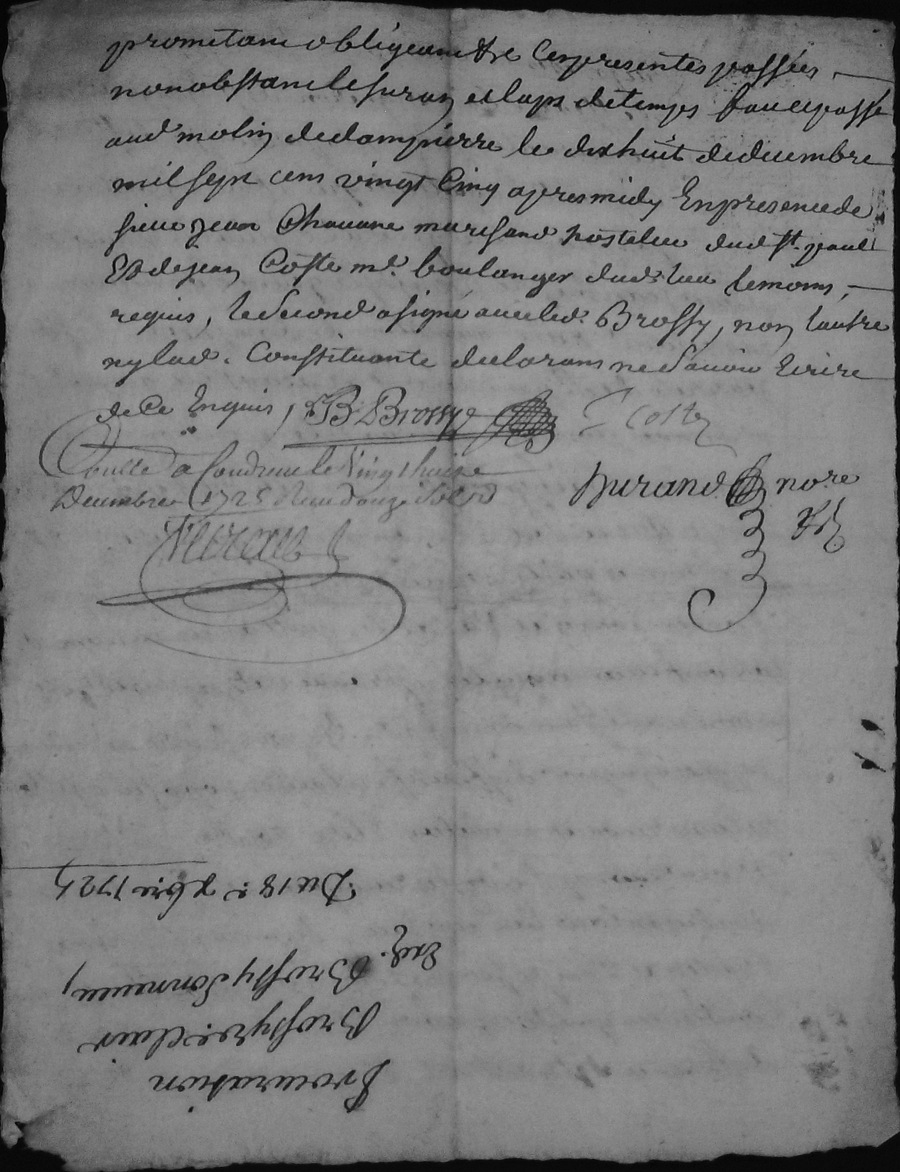 prometant obligeant &c ces presentes passées
nonobstant le suran et laps de temps fait et passé
aud molin de dampierre le dixhuit de decembre
mil sept cens vingt Cinq apres midy En presence de
sieur jean Chavane marchand hostelier dud st. paul
Et de jean Coste md. boulanger dud. lieu temoins,
requis, le second a signé avec led. Brossy, non l'autre
ny lad. Constituante declarans ne savoir Ecrire
de Ce Enquis, B Brossy J Coste
Conllé a Condrieu le vingthuit
Decembre 1725 Recu douze sols
Durand nore
Procuration
Brossy
Brossy son
Du 18e xbre 1725